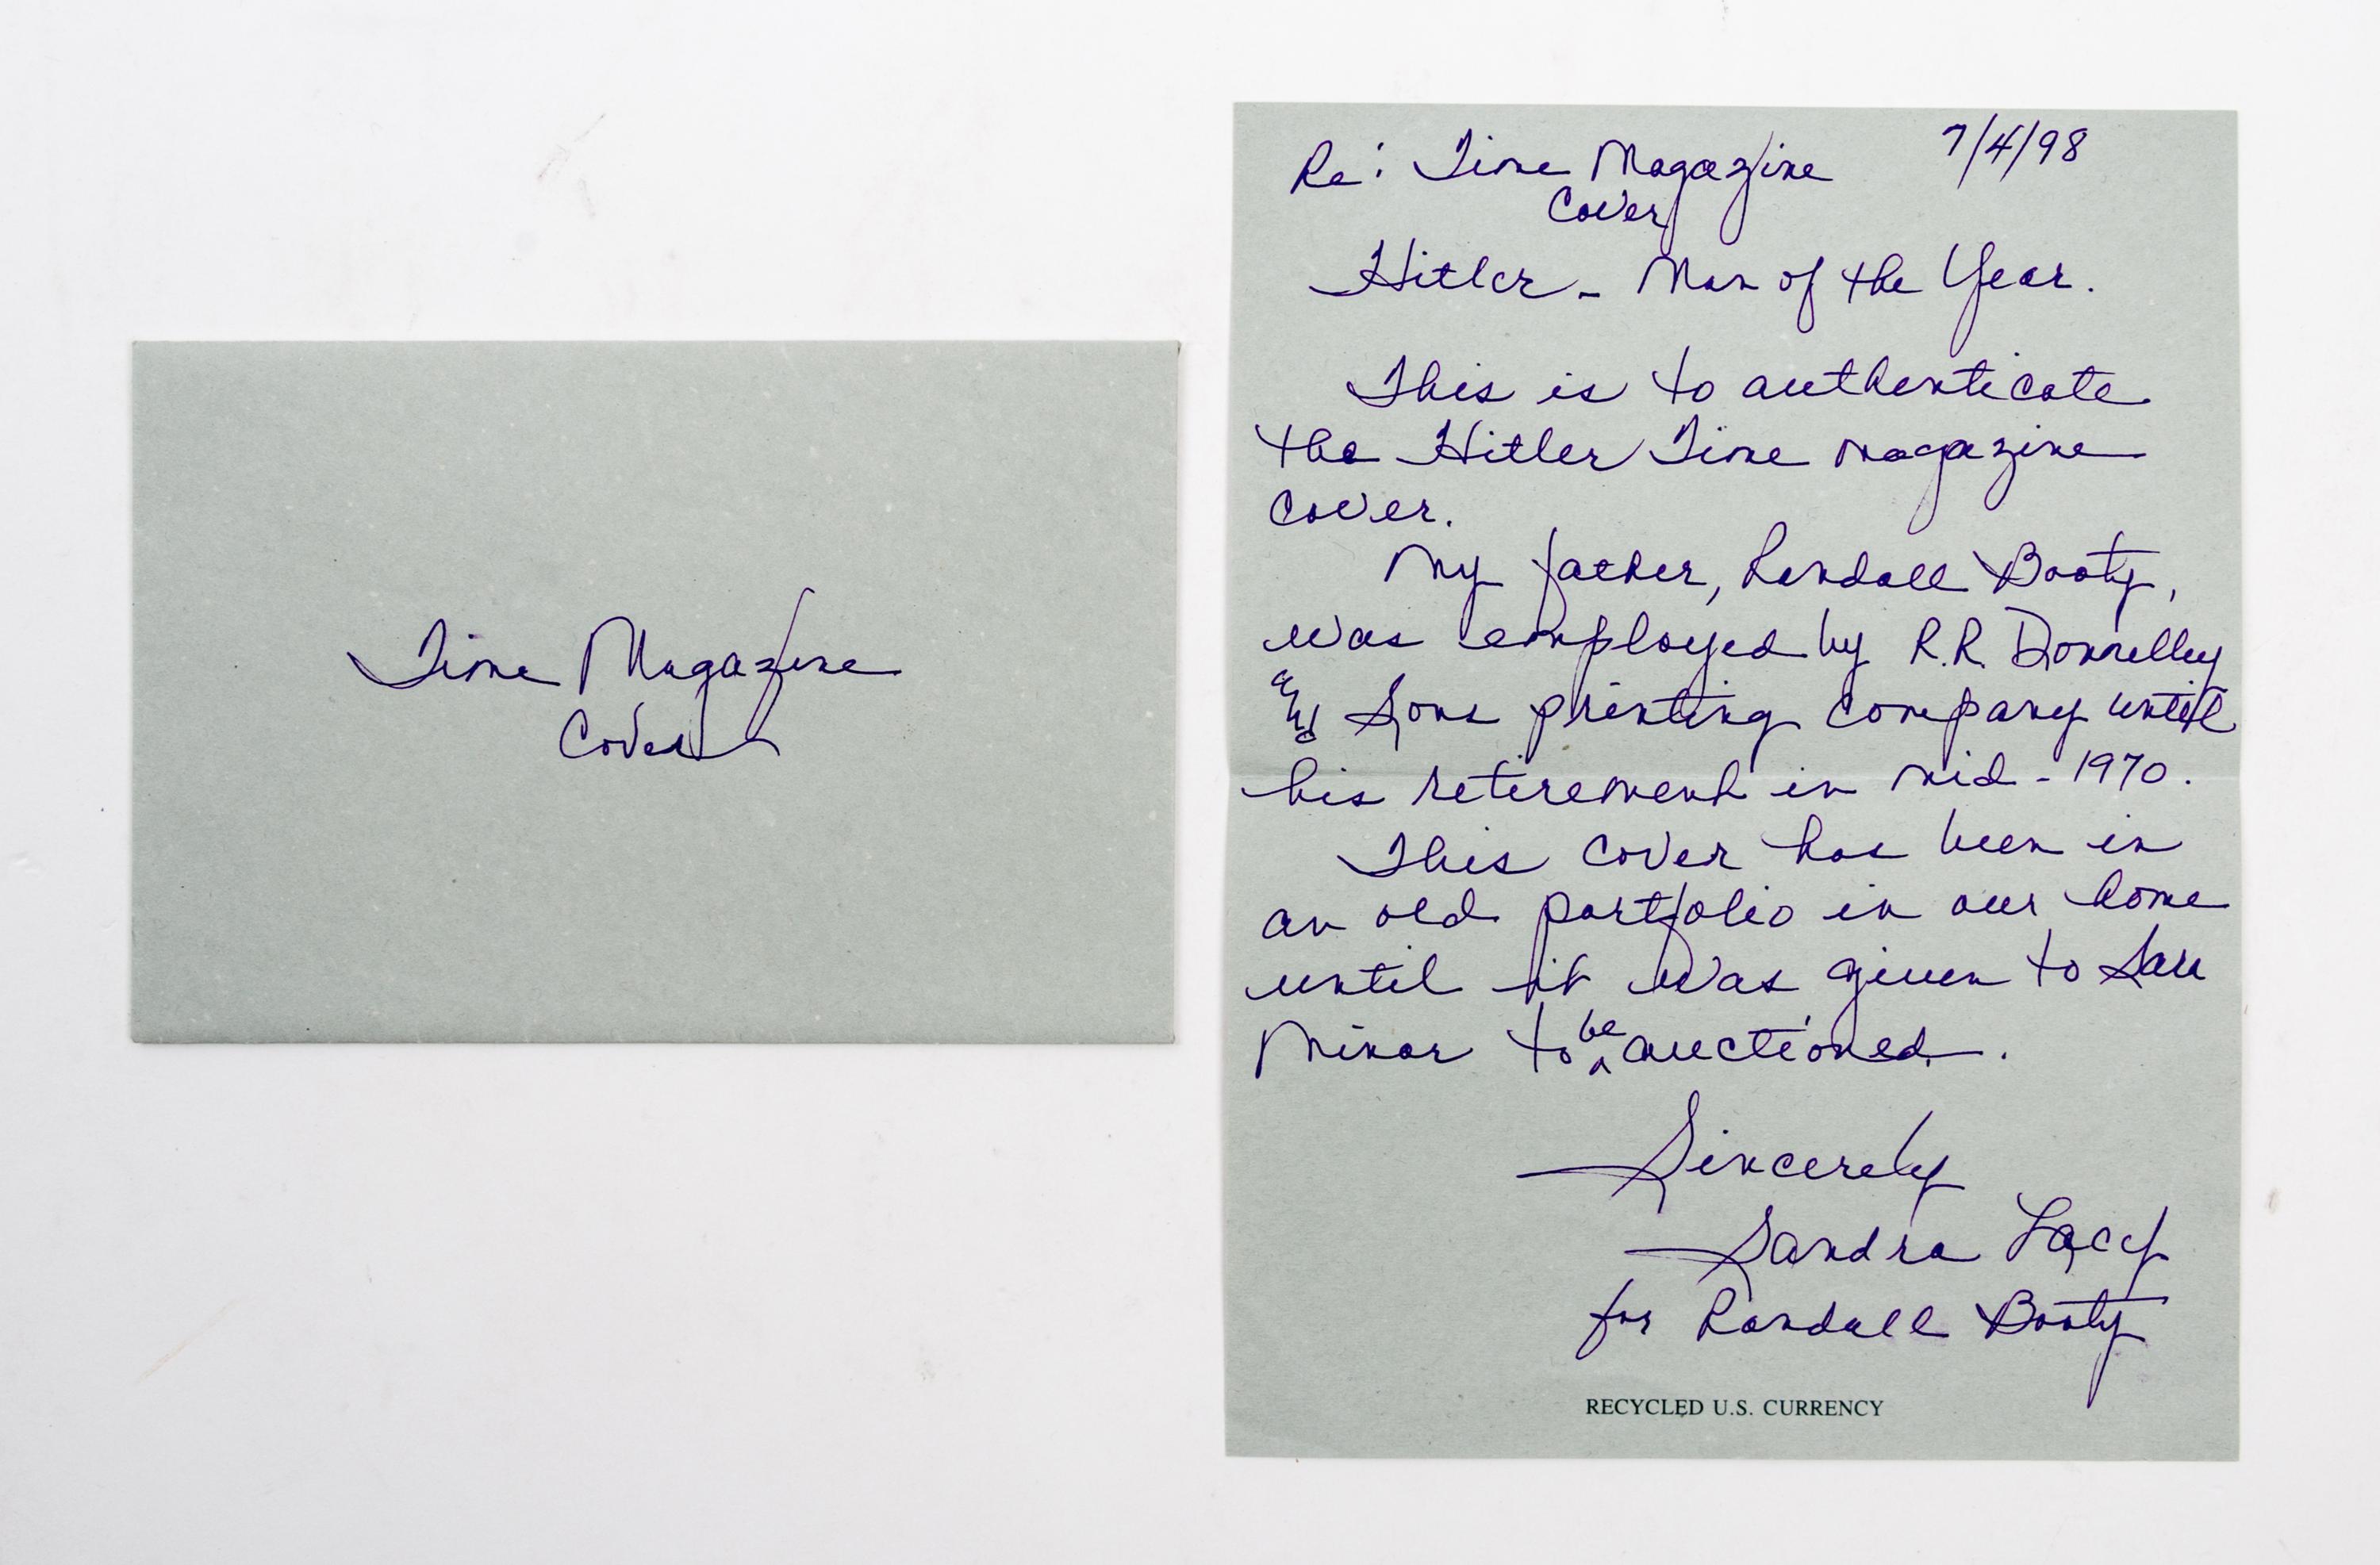 Time Magazine
Cover
Re: Time Magazine 7/4/98
Cover
Hitler - Man of the Year.
This is to authenticate
the Hitler Time magazine
cover.
My father, Randall Booty,
was employed by R.R. Donnelley
and Sons printing company until
his retirement in mid - 1970.
This cover has been in
an old portfolio in our home
until it was given to
Minor to be auctioned.
Sincerely
Sandra Lacy
for Randall Booty
RECYCLED U.S. CURRENCY